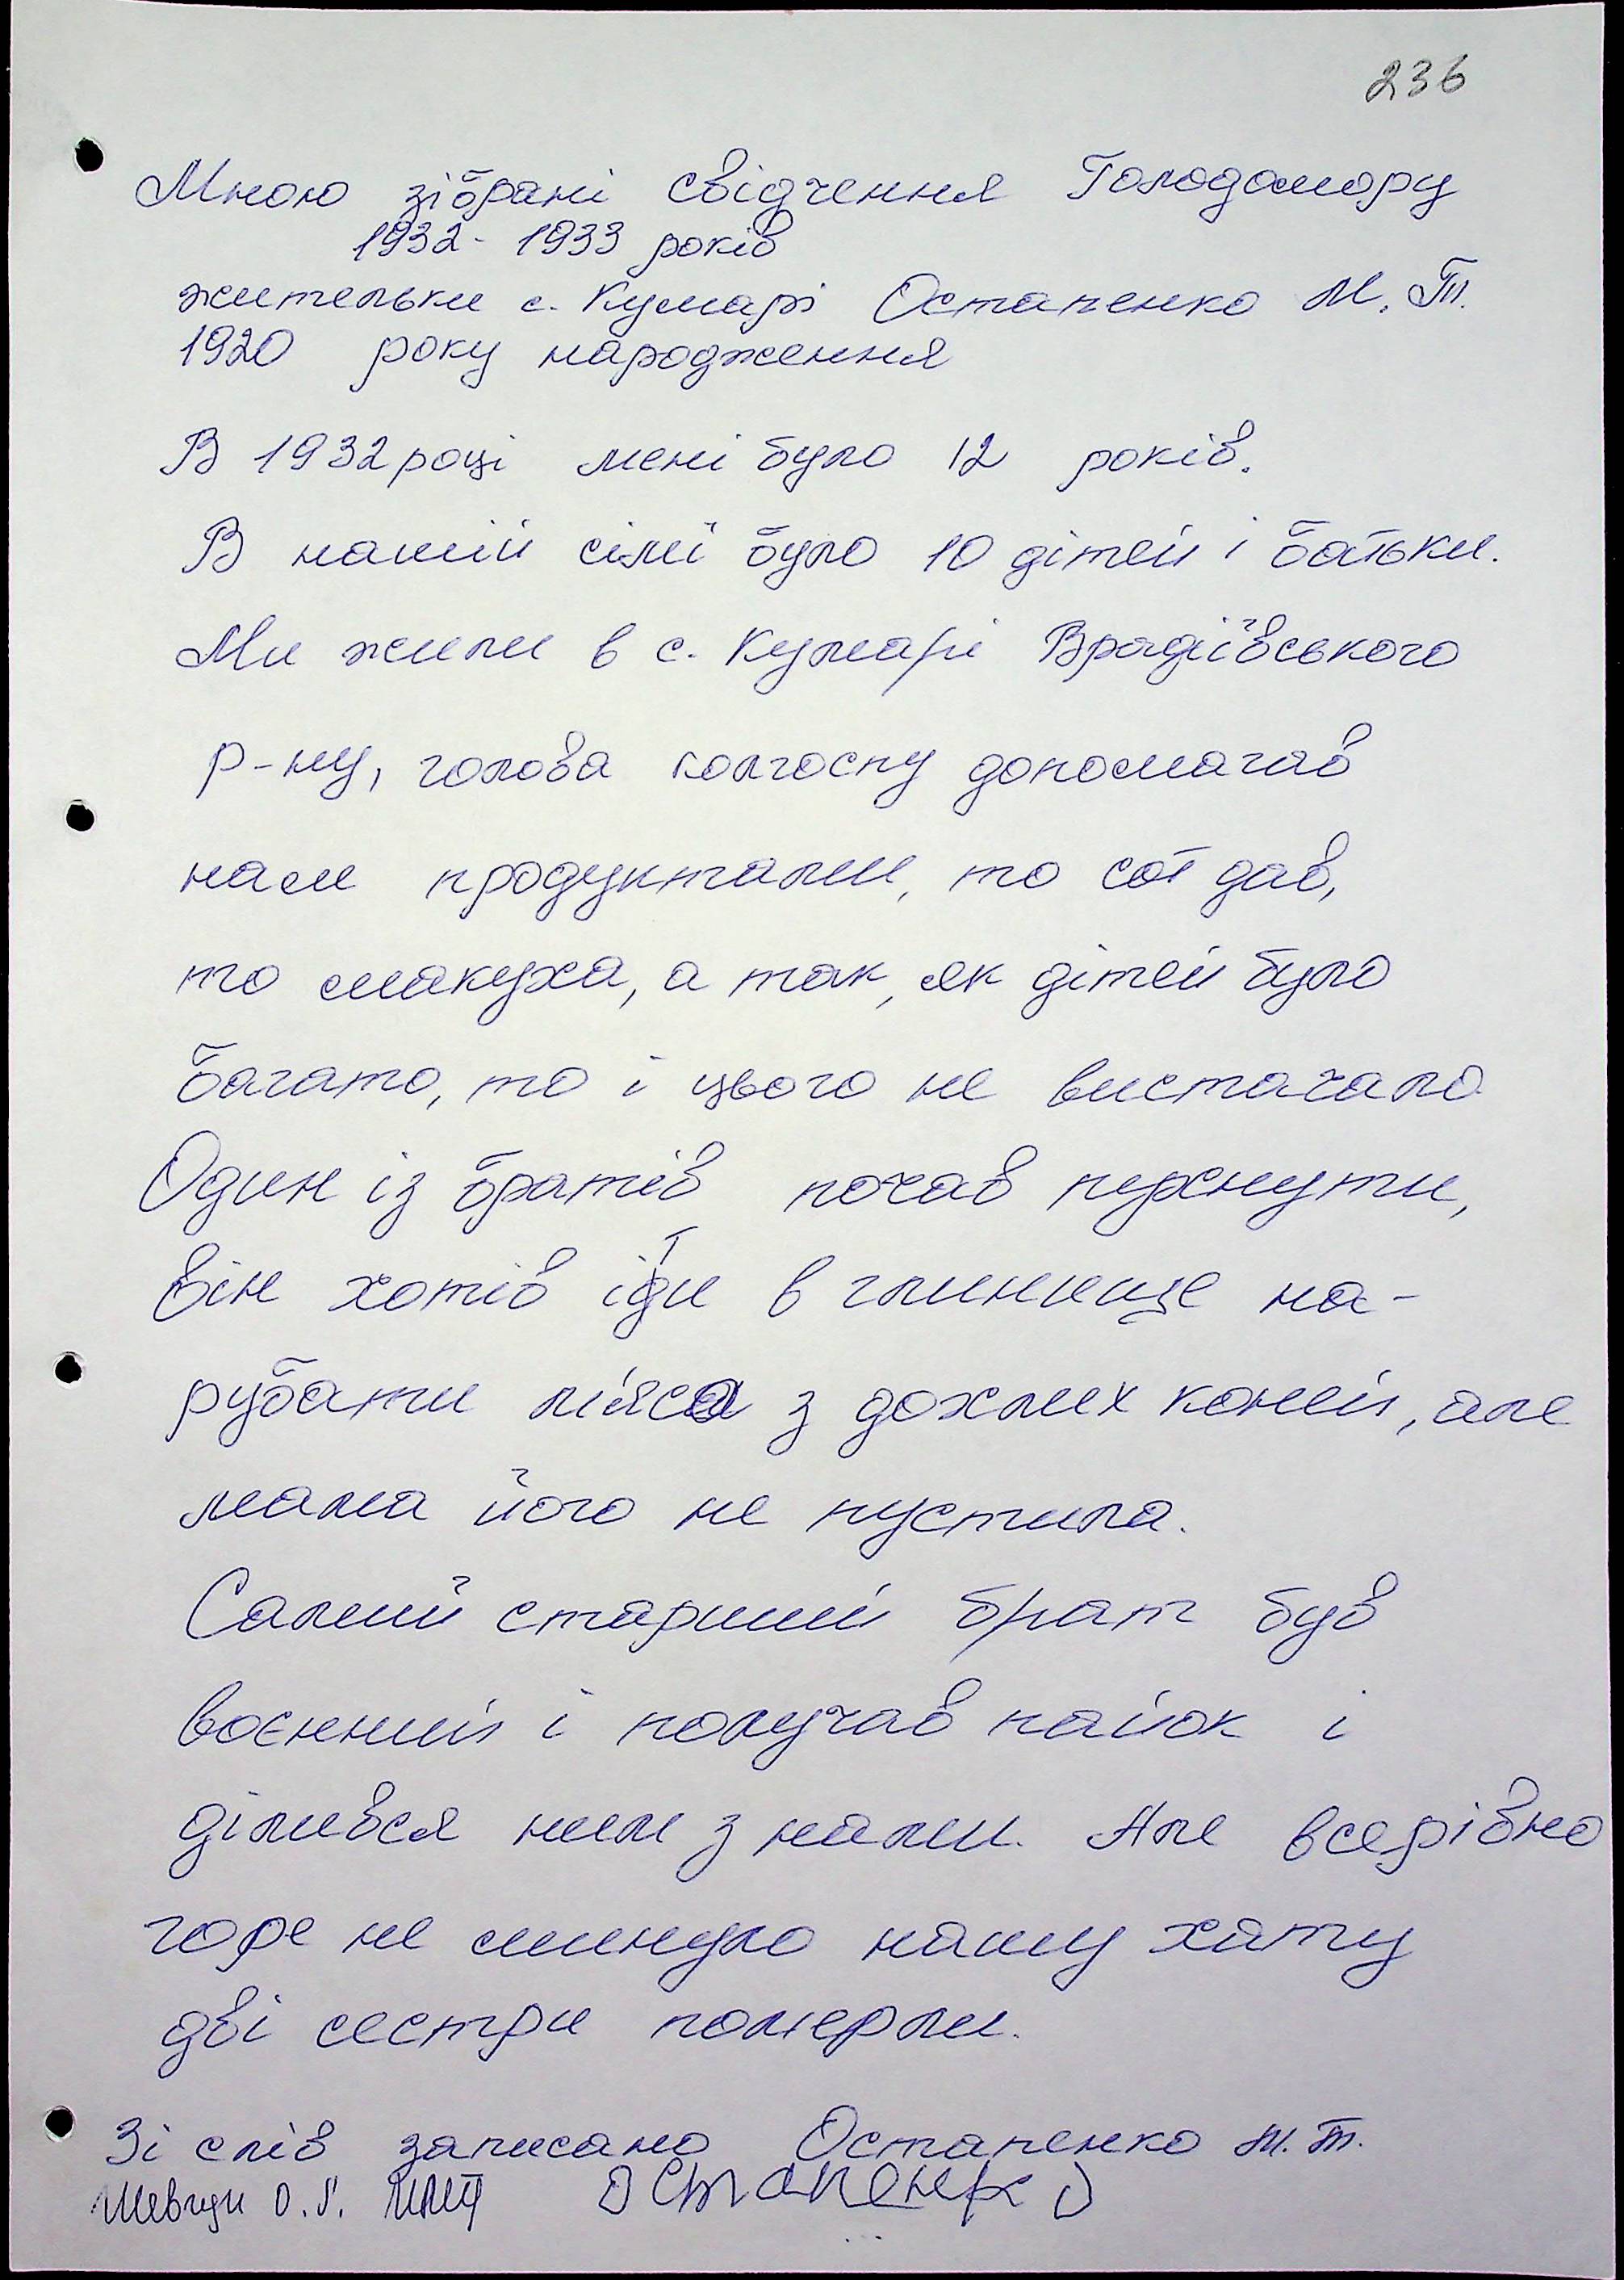 236
Мною зібрані свідчення Голодомору
1932 - 1933 років
жительки с. Кумарі Остапенко М. Т.
1920 року народження
В 1932 році мені було 12 років.
В нашій сімї було 10 дітей і батьки.
Ми жили в с. Кумарі Врадіївського
р-ну, голова колгоспу допомагав
нам продуктами, то сої дав,
то макуха, а так, як дітей було
багато, то і цього не вистачало
Один із братів почав пухнути,
він хотів іти в глинище на-
рубати мяса з дохлих коней, але
мама його не пустила.
Самий старший брат був
воєнний і получав пайок і
ділився ним з нами. Але всерівно
горе не минуло нашу хату
дві сестри померли.
Зі слів записано Остапенко М. Т.
Шевчук О. Остапенко